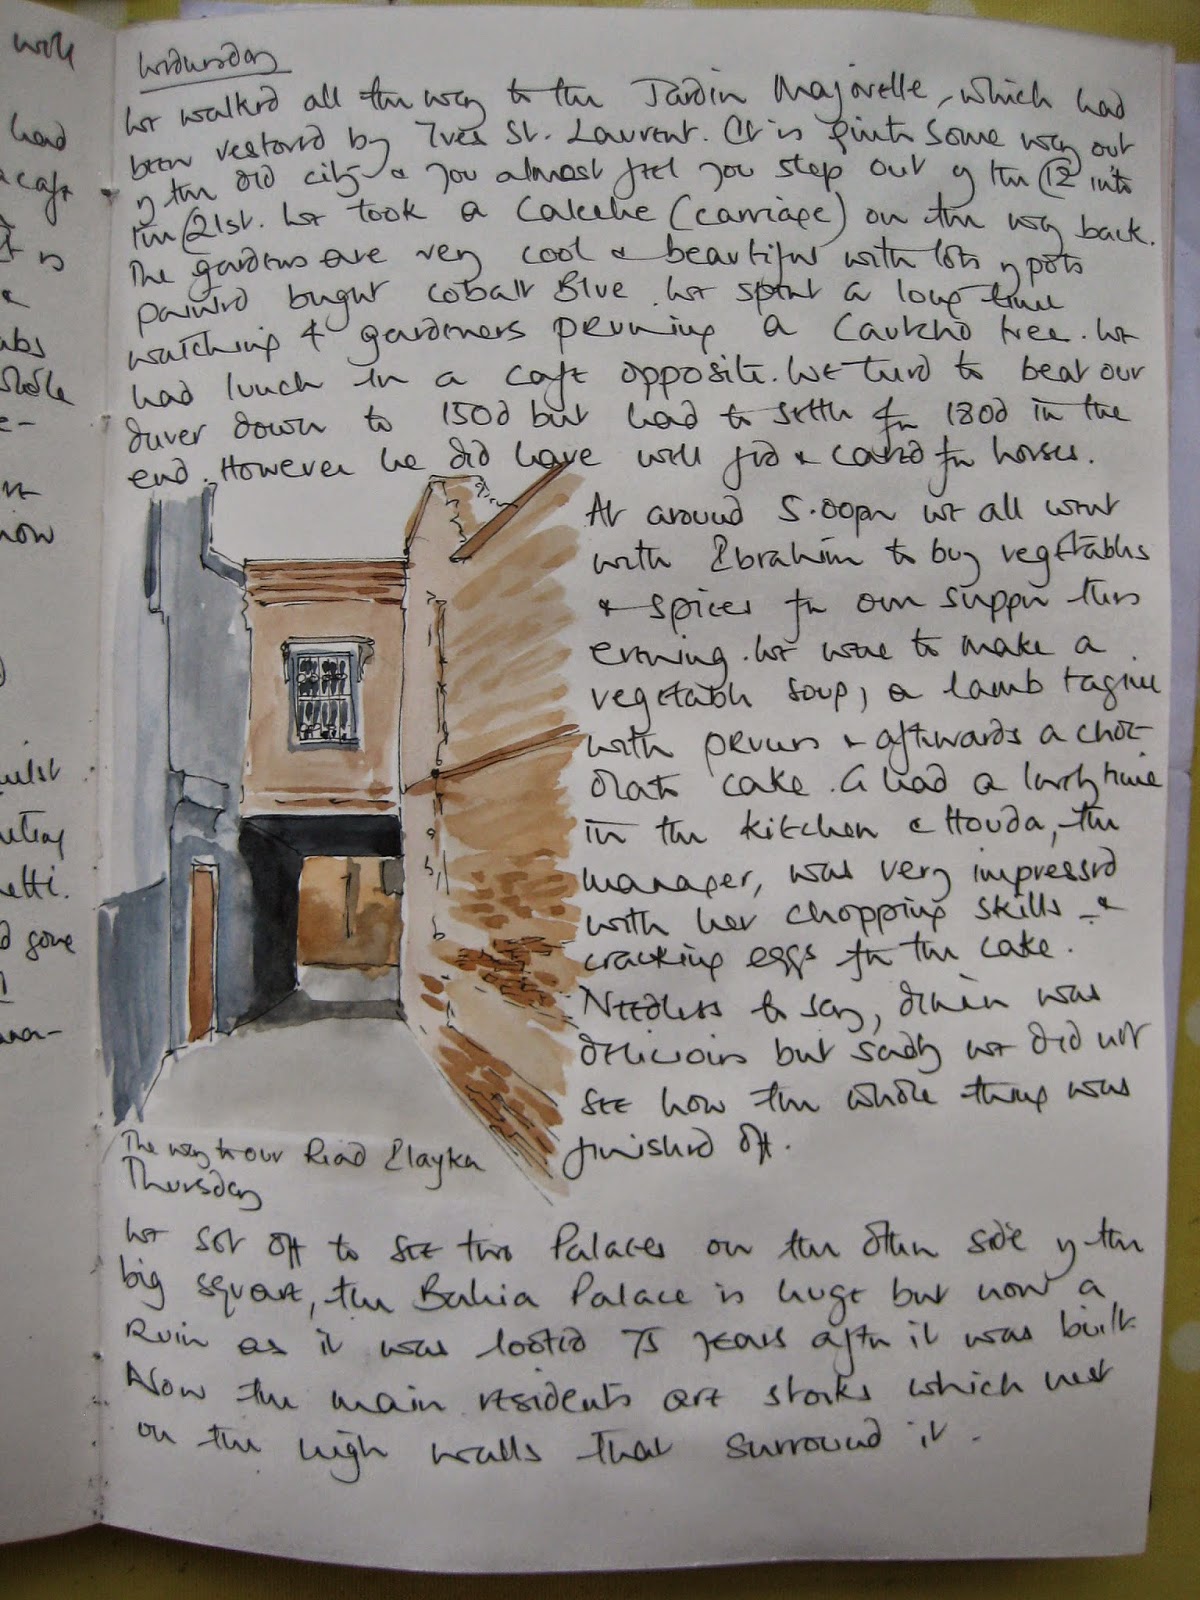 with
had
a café
t is
&
abs
whole
e-
now
hilst
etti.
d gone
ana-
Wednesday
We walked all the way to the Jardin Majorelle, which had
been restored by Yves St. Laurent. It is quite some way out
of the old city & you almost feel you step out of the C12 into
the C21st. We took a Caleche (carriage) on the way back.
The gardens are very cool & beautiful with lots of pots
painted bright cobalt Blue. We spent a long time
watching 4 gardeners pruning a Cautcho tree. We
had lunch in a café opposite. We tried to beat our
driver down to 150d but had to settle for 180d in the
end. However he did have well fed & cared for horses.
At around 5.00pm we all went
with Ibrahim to buy vegetables
& spices for our supper this
evening. We were to make a
vegetable soup, a lamb tagine
with prunes & afterwards a choc-
olate cake. G had a lovely time
in the kitchen & Houda, the
manager, was very impressed
with her chopping skills &
cracking eggs for the cake.
Needless to say, dinner was
delicious but sadly we did not
see how the whole thing was
finished off.
The way to our Riad Elayka
Thursday
We set off to see two Palaces on the other side of the
big square, the Bahia Palace is huge but now a
ruin as it was looted 75 years after it was built.
Now the main residents are storks which nest
on the high walls that surround it.